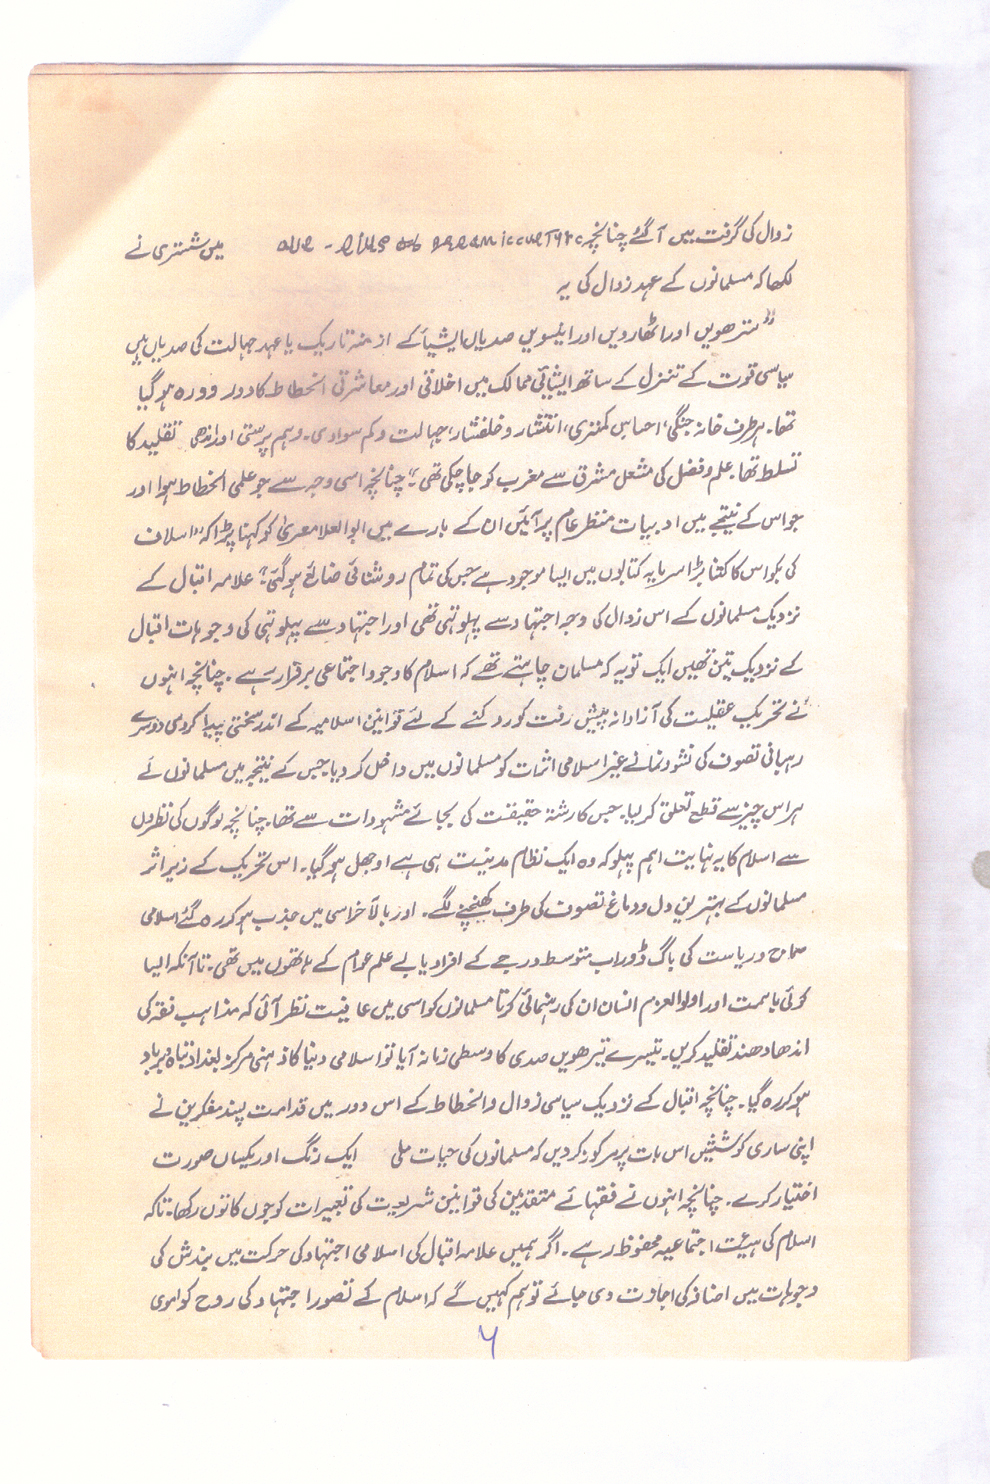 زوال کی گرفت میں آگئے چنانچہ میں شستری نے
لکھا کہ مسلمانوں کے عہد زوال کی یہ
"سترھویں اور اٹھارویں اور انیسویں صدیاں ایشیا کے ازمنہ تاریک یا عہد جہالت کی صدیاں ہیں
سیاسی قوت کے تنزل کے ساتھ ایشیائی ممالک میں اخلاقی اور معاشرتی انحطاط کا دور دورہ ہو گیا
تھا۔ ہر طرف خانہ جنگی، احساس کمتری، انتشار و خلفشار، جہالت و کم سوادی۔ وہم پرستی اور اندھی تقلید کا
تسلط تھا۔ علم و فضل کی مشعل مشرق سے مغرب کو جا چکی تھی۔" چنانچہ اسی وجہ سے جو علمی انحطاط ہوا اور
جو اس کے نتیجے میں ادبیات منظر عام پر آئیں ان کے بارے میں ابوالعلا معری کو کہنا پڑا کہ "اسلاف
کی بکواس کا کتنا بڑا سرمایہ کتابوں میں ایسا موجود ہے جس کی تمام روشنائی ضائع ہو گئی۔" علامہ اقبال کے
نزدیک مسلمانوں کے اس زوال کی وجہ اجتہاد سے پہلو تہی تھی اور اجتہاد سے پہلو تہی کی وجوہات اقبال
کے نزدیک تین تھیں ایک تو یہ کہ مسلمان چاہتے تھے کہ اسلام کا وجود اجتماعی برقرار رہے۔ چنانچہ انہوں
نے تحریک عقلیت کی آزادانہ پیش رفت کو روکنے کے لئے قوانین اسلامیہ کے اندر سختی پیدا کر دی دوسرے
رہبانی تصوف کی نشو و نما نے غیر اسلامی اثرات کو مسلمانوں میں داخل کر دیا۔ جس کے نتیجہ میں مسلمانوں نے
ہر اس چیز سے قطع تعلق کر لیا۔ جس کا رشتہ حقیقت کی بجائے مشہودات سے تھا۔ چنانچہ لوگوں کی نظروں
سے اسلام کا یہ نہایت اہم پہلو کہ وہ ایک نظام مدنیت ہی ہے اوجھل ہو گیا۔ اس تحریک کے زیر اثر
مسلمانوں کے بہترین دل و دماغ تصوف کی طرف کھنچنے لگے۔ اور بالآخر اسی میں جذب ہو کر رہ گئے اسلامی
سماج و ریاست کی باگ ڈور اب متوسط درجے کے افراد یا بے علم عوام کے ہاتھوں میں تھی۔ تا آنکہ ایسا
کوئی باہمت اور اولوالعزم انسان ان کی رہنمائی کرتا مسلمانوں کو اسی میں عافیت نظر آئی کہ مذاہب فقہ کی
اندھا دھند تقلید کریں۔ تیسرے تیرھویں صدی کا وسطی زمانہ آیا تو اسلامی دنیا کا ذہنی مرکز بغداد تباہ و برباد
ہو کر رہ گیا۔ چنانچہ اقبال کے نزدیک سیاسی زوال و انحطاط کے اس دور میں قدامت پسند مفکرین نے
اپنی ساری کوششیں اس بات پر مرکوز کر دیں کہ مسلمانوں کی حیات ملی ایک رنگ اور یکساں صورت
اختیار کرے۔ چنانچہ انہوں نے فقہائے متقدمین کی قوانین شریعت کی تعبیرات کو جوں کا توں رکھا۔ تاکہ
اسلام کی ہیئت اجتماعیہ محفوظ رہے۔ اگر ہمیں علامہ اقبال کی اسلامی اجتہاد کی حرکت میں بندش کی
وجوہات میں اضافہ کی اجازت دی جائے تو ہم کہیں گے کہ اسلام کے تصور اجتہاد کی روح کو اموی